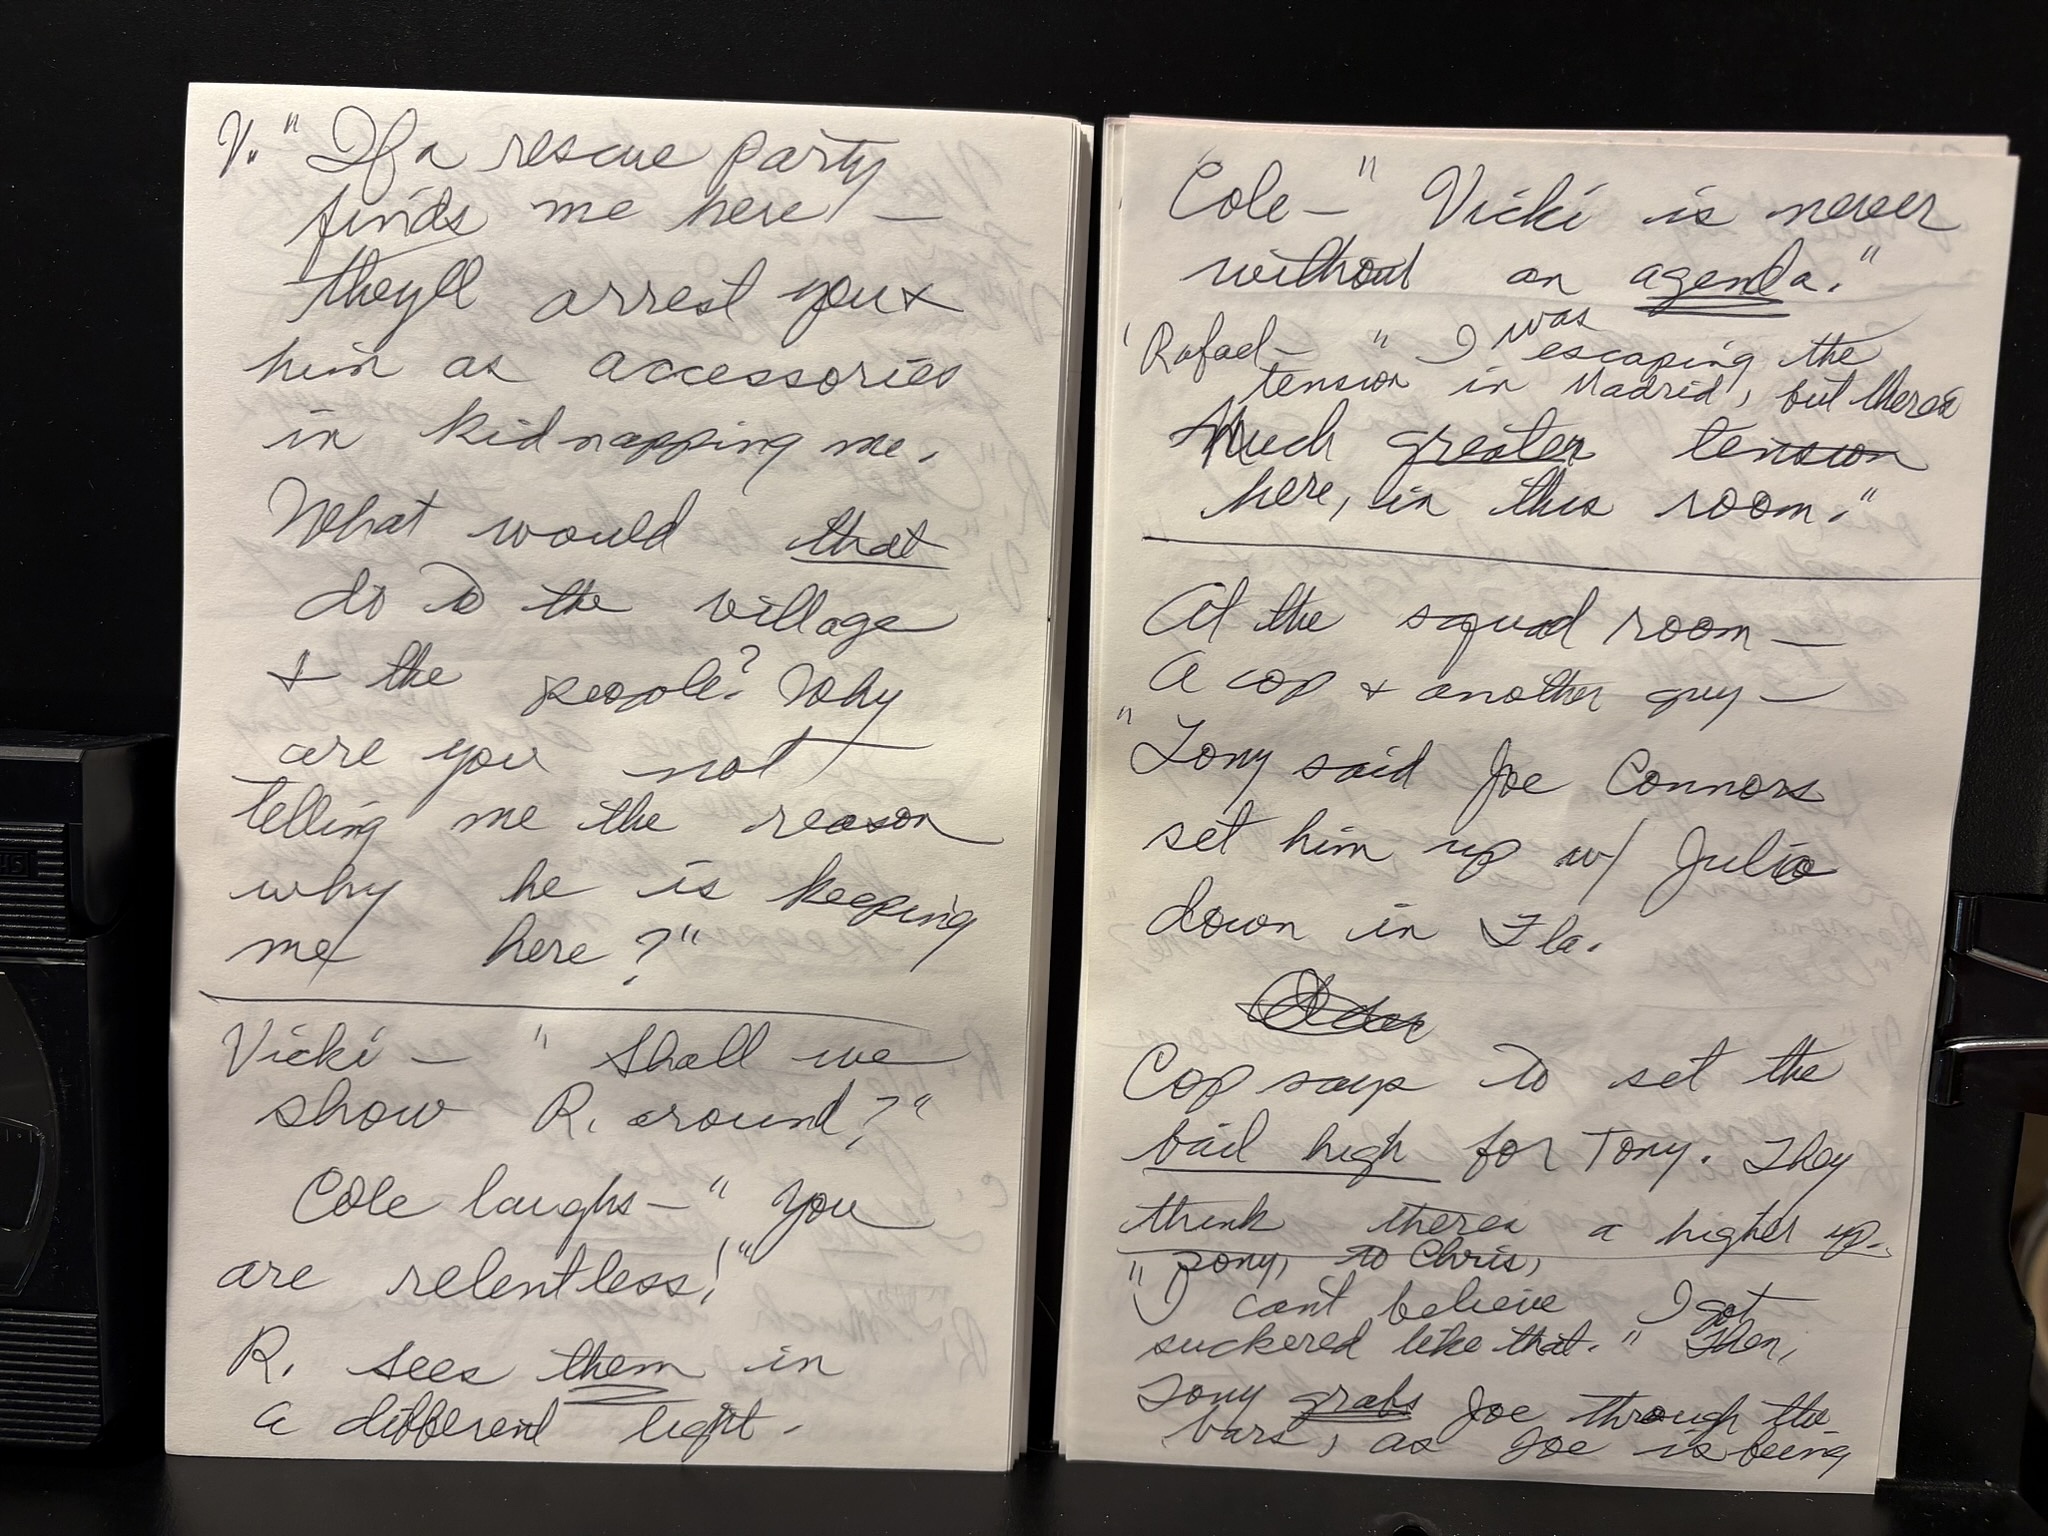 V. " If a rescue party
finds me here —
they'll arrest you &
him as accessories
in kidnapping me.
What would that
do to the village
& the people? Why
are you not
telling me the reason
why he is keeping
me here?"
Vicki — " Shall we
show R. around?"
Cole laughs — " You
are relentless!"
R. sees them in
a different light.
Cole — " Vicki is never
without an agenda."
Rafael — " I was escaping the
tension in Madrid, but there's
Much greater tension
here, in this room."
At the squad room —
a cop & another guy —
" Tony said Joe Connors
set him up w/ Julio
down in Fla.
Cop says to set the
bail high for Tony. They
think there's a higher up.
Tony, to Chris,
" I can't believe I got
suckered like that." Then,
Tony grabs Joe through the
bars, as Joe is being